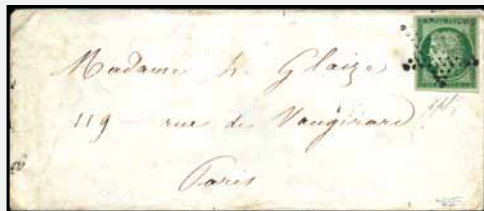 Madame h. Glaize
119 rue de Vaugirard
Paris